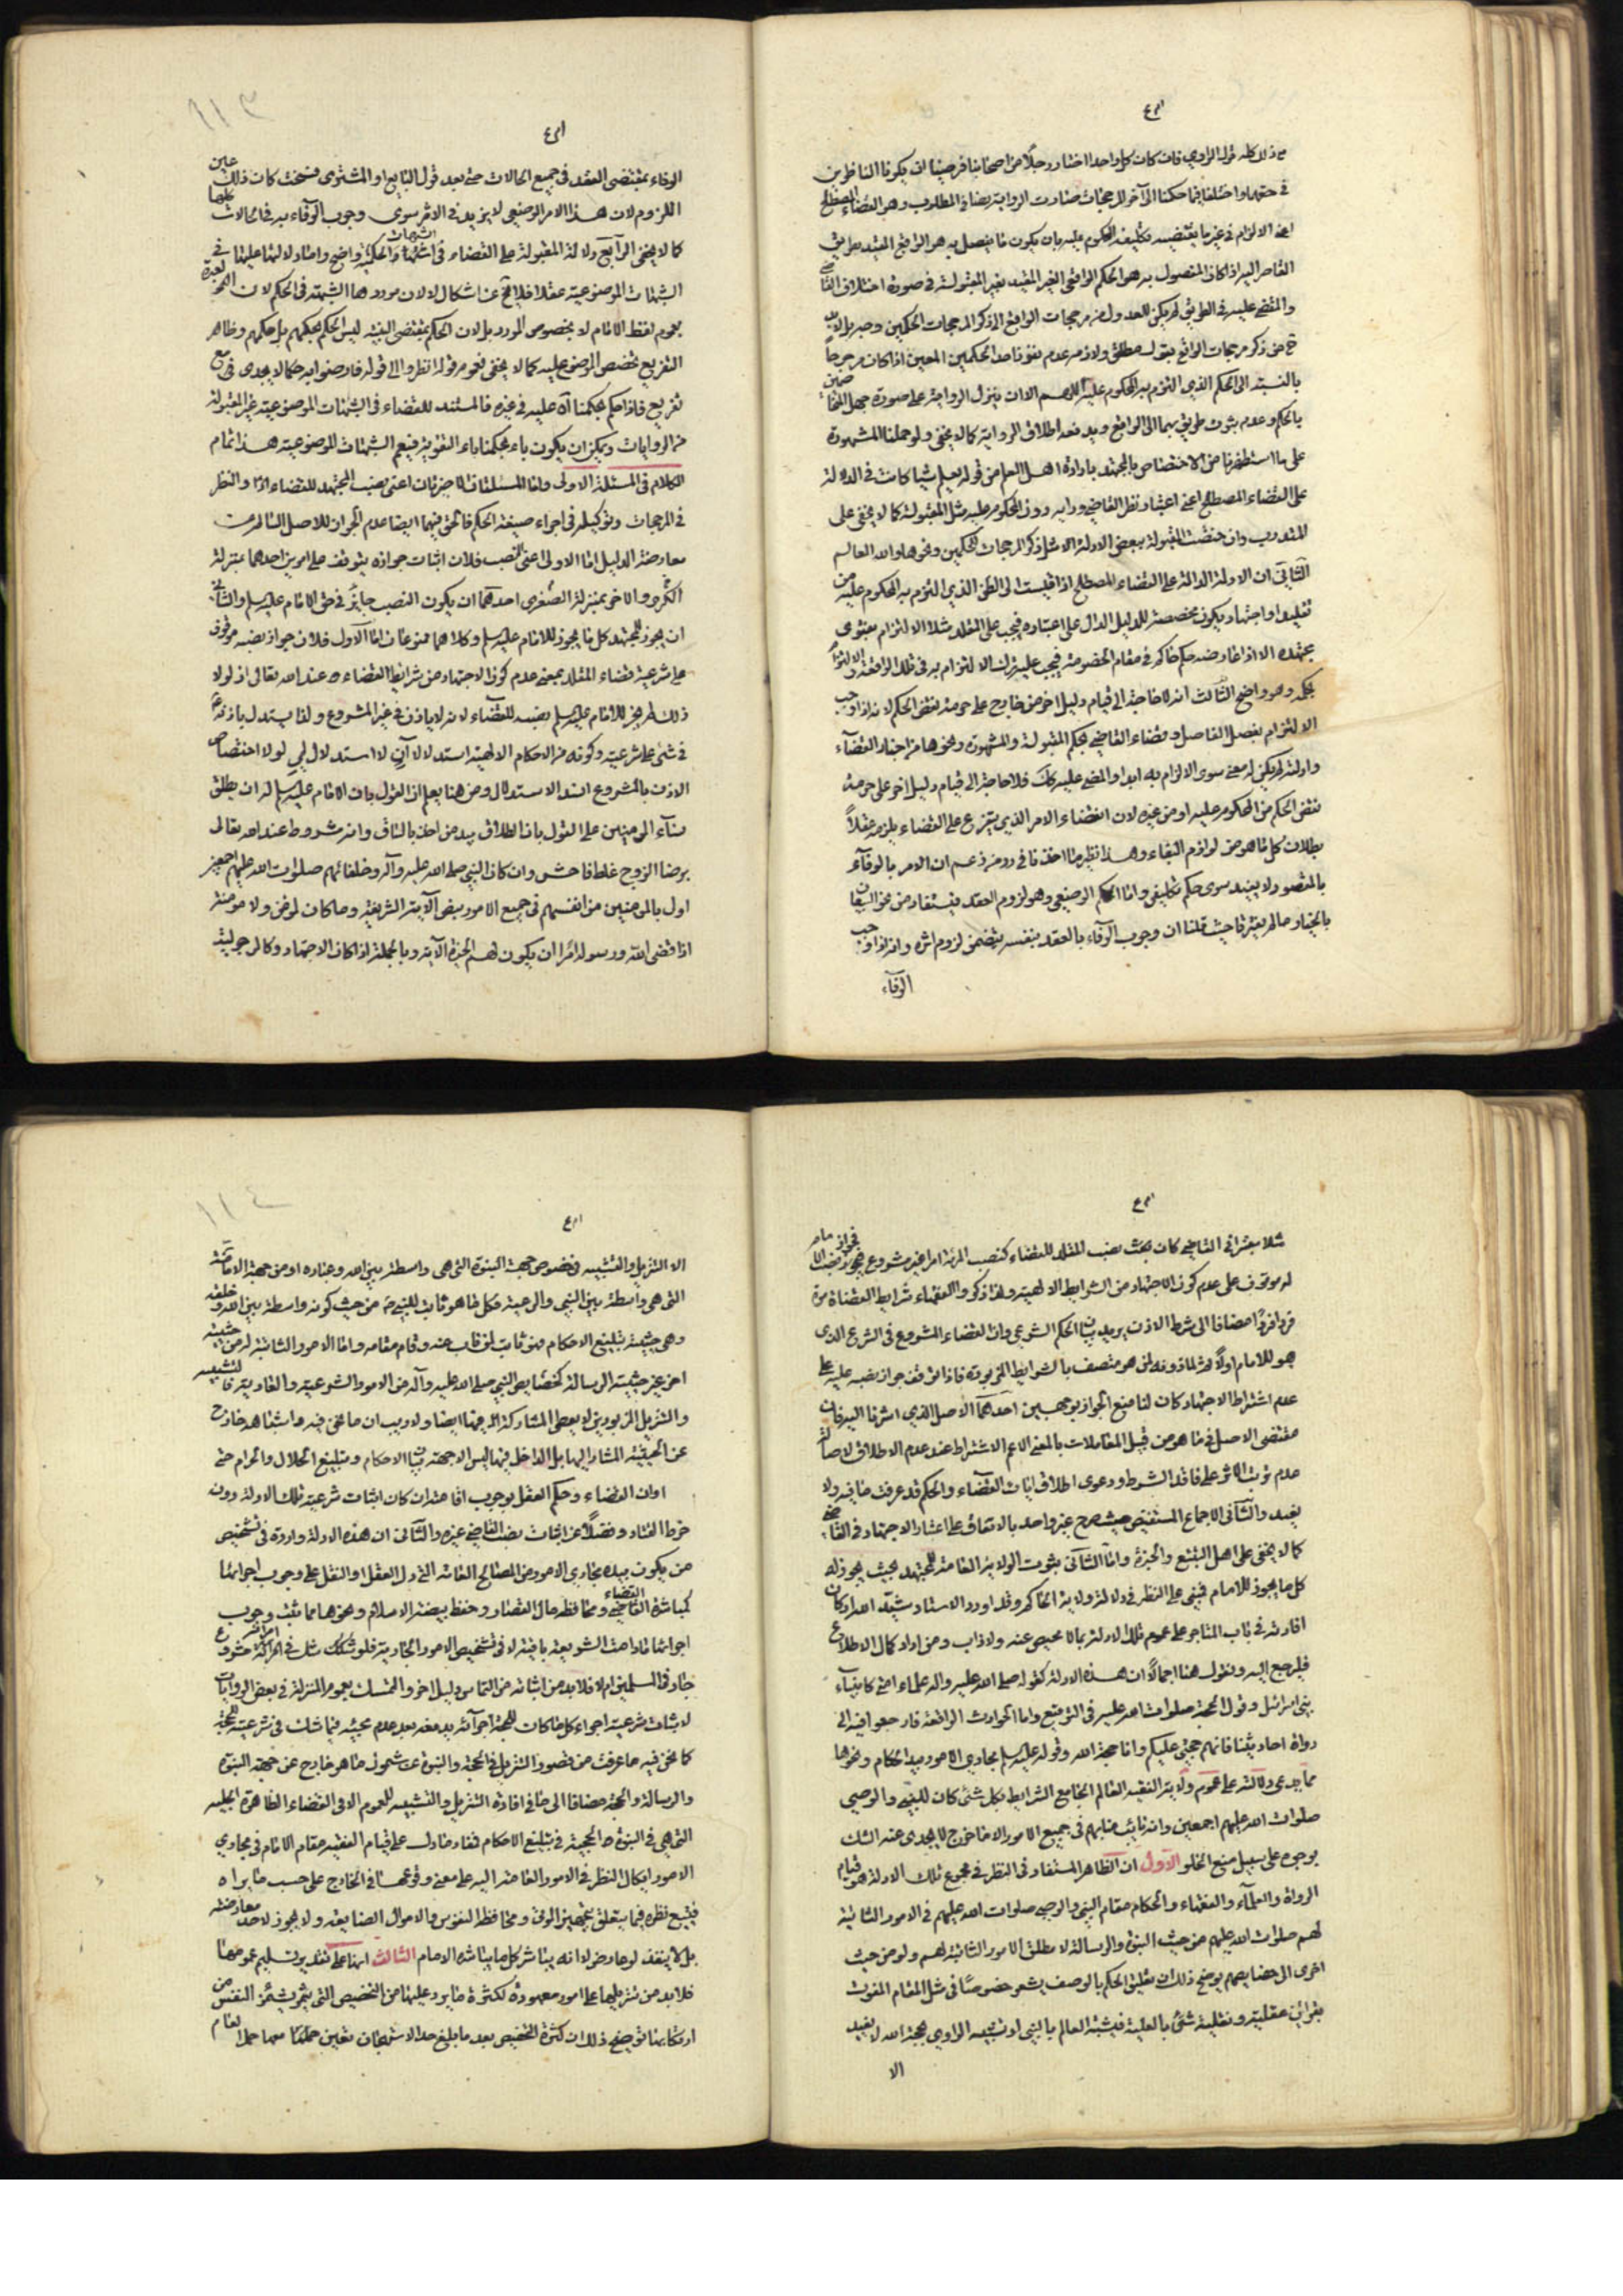 من ذلك كله قول الراوي فان كان كل واحد اختار رجلا من اصحابنا فرضيا ان يكونا الناظرين
في حقهما واختلفا فيما حكما الى آخر المرجحات فصارت الرواية نصا في المطلوب وهو القضاء المصطلح
اعني الالزام في غير ما يقتضيه تكليف المحكوم عليه بان يكون ما يفصل به هو الواقع المقيد بطريق
القاصر اليه اذا كان المفصول به هو الحكم الواقعي الغير المقيد بغير المقبولة في صورة اختلاف القاضي
والمقضي عليه في الطريق لم يكن للعدول من مرجحات الواقع الى ذكر المرجحات الحكمين وجه بل لابد
ح من ذكر مرجحات الواقع بقول مطلق ولازمه عدم نفوذ احد الحكمين المعين اذا كان مرجوحا
بالنسبة الى الحكم الذي التزم به المحكوم عليه اللهم الا ان ينزل الرواية على صورة جهل المتخاصمين
بالحكم وعدم ثبوت طريق لهما الى الواقع ويدفعه اطلاق الرواية كما لا يخفى ولو حملنا المشهورة
على ما استظهرنا من الاختصاص بالمجتهد بارادة اهل العلم من قوله يعلم شيئا كانت في الدلالة
على القضاء المصطلح اعني اعتبار نظر القاضي ورايه دون المحكوم عليه مثل المقبولة كما لا يخفى على
المتدرب وان خصت المقبولة ببعض الادلة الا مثل ذكر المرجحات للحكمين ونحوها والله العالم
الثاني ان الادلة الدالة على القضاء المصطلح اذا قيست الى الظن الذي التزم به المحكوم عليه من
تقليد او اجتهاد يكون مخصصة للدليل الدال على اعتباره فيجب على المقلد مثلا الالتزام بفتوى
مجتهده الا اذا عارضه حكم حاكم في مقام الخصومة فيجب عليه ترك الالتزام به في تلك الواقعة والالتزام
بحكمه وهو واضح الثالث انه لا حاجة الى قيام دليل اخر من خارج على حرمة نقض الحكم لانه اذا وجب
الالتزام بفصل الفاصل وقضاء القاضي بحكم المقبولة والمشهورة ونحوها من اخبار القضاء
وادلته لم يكن له معنى سوى الالزام به ابدا والمضي عليه كك فلا حاجة الى قيام دليل اخر على حرمة
نقض الحكم من المحكوم عليه او من غيره لان اقتضاء الامر الذي يتفرع على القضاء يلزمه عقلا
بطلان كل ما هو من لوازم البقاء وهذا نظير ما حققنا في رد من زعم ان الامر بالوفاء
بالعقود لا يفيد سوى حكم تكليفي واما الحكم الوضعي وهو لزوم العقد فيستفاد من نحو البيعان
بالخيار ما لم يفترقا حيث قلنا ان وجوب الوفاء بالعقد بنفسه يتضمن لزوم اثره وانه اذا وجب
الوفاء
١١٣
الوفاء بمقتضى العقد في جميع الحالات حتى بعد قول البايع او المشتري فسخت كان ذلك عين
اللزوم لان هذا الامر الوضعي لا يزيد في الاثر سوى وجوب الوفاء به في الحالات كلها
كما لا يخفى الرابع دلالة المقبولة على القضاء في الشبهات الحكمية واضح واما دلالتها عليها في
الشبهات الموضوعية عقلا فلا تخ عن اشكال لا لان موردها الشبهة في الحكم لان العبرة
بعموم لفظ الامام لا بخصوص المورد بل لان الحكم بمقتضى البينة ليس الحكم بحكمهم بل حكمهم وظاهر
التفريع تخصص الموضوع عليه كما لا يخفى فعموم قوله انظروا الى قوله فارضوا به حكما لا يجدى في مع
تفريع فاذا حكم بحكمنا آه عليه في غيره فالمستند للقضاء في الشبهات الموضوعية غير المقبولة
من الروايات ويمكن ان يكون باء بحكمنا باء التقوية فيعم الشبهات الموضوعية هذا تمام
الكلام في المسئلة الاولى واما المسئلتان الاخيرتان اعني نصب المجتهد للقضاء والنظر
في المرجحات وتوكيله في اجراء صيغة الحكم فالحق فيهما ايضا عدم الجواز للاصل السالم عن
معارضة الدليل اما الاولى اعني النصب فلان اثبات جوازه يتوقف على امرين احدهما بمنزلة
الكبرى والاخرى بمنزلة الصغرى احدهما ان يكون النصب جايز في حق الامام عليه السلم والثاني
ان يجوز للمجتهد كل ما يجوز للامام عليه السلم وكلاهما ممنوعان اما الاول فلان جواز نصبه موقوف
على شرعية قضاء المقلد بمعنى عدم كون الاجتهاد من شرايط القضاء عند الله تعالى اذ لولا
ذلك لم يجز للامام عليه السلم نصبه للقضاء لانه لا ياذن في غير المشروع ولذا يستدل باذنهم
في شئ على شرعيته وكونه من الاحكام الالهية استدلالا آن لا استدلال لمي لولا اختصاص
الاذن بالمشروع انسد الاستدلال ومن هنا يعلم ان القول بان الامام عليه السلم له ان يطلق
نساء المؤمنين على القول بان الطلاق بيد من اخذ بالساق وانه مشروط عند الله تعالى
برضا الزوج غلط فاحش وان كان النبي صلى الله عليه وآله وخلفائهم صلوات الله عليهم اجمعين
اولى بالمؤمنين من انفسهم في جميع الامور بنص الآية الشريفة وما كان لمؤمن ولا مؤمنة
اذا قضى الله ورسوله امرا ان يكون لهم الخيرة الآية وبالجملة اذا كان الاجتهاد وكالرجولية
مثلا معتبرا في القاضي كان نصب المقلد للقضاء كنصب المرئة امرا غير مشروع فجواز نصب الامام
له موقوف على عدم كون الاجتهاد من الشرايط الالهية ولذا ذكر الفقهاء شرايط القضاة مرة
فردا فردا مضافا الى شرط الاذن يريد بيان الحكم الشرعي وان القضاء المشروع في الشرع الذي
هو للامام اولا ثم لماذونه لمن هو متصف بالشرايط المزبورة فاذا توقف جواز نصبه عليه على
عدم اشتراط الاجتهاد كان لنا منع الجواز بوجهين احدهما الاصل الذي اشرنا اليه فان
مقتضى الاصل في ما هو من قبيل المعاملات بالمعنى الاعم الاشتراط عند عدم الاطلاق لاصالة
عدم ترتب الاثر على فاقد الشرط ودعوى اطلاق ايات القضاء والحكم قد عرفت ما فيه ولا
يفيد والثاني الاجماع المستفيض حيث صرح غير واحد بالاتفاق على اعتبار الاجتهاد في القاضي
كما لا يخفى على اهل التتبع والخبرة واما الثاني ثبوت الولاية العامة للمجتهد بحيث يجوز له
كل ما يجوز للامام فبنى على النظر في دلالة ولاية الحاكم وقد اورد الاستاد شيد الله اركان
افادته في باب المتاجر على عموم تلك الادلة بما لا محيص عنه ولا ذاب ومن اراد كمال الاطلاع
فليرجع اليه ونقول هنا اجمالا ان هذه الادلة كقوله صلى الله عليه واله علماء امتي كانبياء
بني اسرائيل وقول الحجة صلوات الله عليه في التوقيع واما الحوادث الواقعة فارجعوا فيه الى
رواة احاديثنا فانهم حجتي عليكم وانا حجة الله وقوله عليه السلم مجاري الامور بيد الحكام ونحوها
مما يدعى دلالته على عموم ولاية الفقيه العالم الجامع الشرايط بكل شئ كان للنبي والوصي
صلوات الله عليهم اجمعين وانه نائب منابهم في جميع الامور الا ما خرج لا يجدى عند الشك
بوجوه على سبيل منع الخلو الاول ان الظاهر المستفاد في النظر في مجموع تلك الادلة هو قيام
الرواة والعلماء والفقهاء والحكام مقام النبي والوصي صلوات الله عليهم في الامور الثابتة
لهم صلوات الله عليهم من حيث النبوة والرسالة لا مطلق الامور الثابتة لهم ولو من حيث
اخرى الى خصايصهم يوضح ذلك ان تعليق الحكم بالوصف يشعر خصوصا في مثل المقام المقرون
بقرائن عقلية ونقلية شئ بالعلية فشبه العالم بالنبي او تشبيه الراوي بحجة الله لا يفيد
الا
١١٤
الا التنزيل والتشبيه في خصوص جهة النبوة التي هي واسطة بين الله وعباده او من جهة الامامة
التي هي واسطة بين النبي والرعية فكل ما هو ثابت للنبي ص من حيث كونه واسطة بين الله وخلقه
وهي حيثية تبليغ الاحكام فهو ثابت لمن ناب عنه وقام مقامه واما الامور الثابتة له من حيثية
اخرى غير حيثية الرسالة كخصايص النبي صلى الله عليه وآله من الامور الشرعية والعادية فالتشبيه
والتنزيل المزبورين لا يعطى المشاركة فيها ايضا ولا ريب ان ما نحن فيه وما شابهه خارج
عن الحيثية المشار اليها بل الداخل فيها ليس الا جهة بيان الاحكام وتبليغ الحلال والحرام حتى
ان القضاء وحكم العقل بوجوب اقامته ان كان اثبات شرعيته تلك الادلة دونه
خرط القتاد وفضلا عن اثبات نصب القاضي غيره والثاني ان هذه الادلة واردة في تشخيص
من يكون بيده مجاري الامور من المصالح العامة التي دل العقل او النقل على وجوب اجرائها
كمباشرة القاضي القضاء ومحافظة مال القصار وحفظ بيضة الاسلام ونحوها مما ثبت وجوب
اجرائها ما دامت الشريعة باقية لا في تشخيص الامور الجارية فلو شك مثل في ان امرا شرع
جاز في المسلمين ام لا فلابد من اثباته من التماس دليل اخر والتمسك بعموم المنزلة في بعض الروايات
لاثبات شرعية اجراء كل ما كان للحجة اجرائه يدفعه بعد عدم مجيئه فيما شك في شرعيته للحجة
كما نحن فيه ما عرفت من قصور التنزيل في الحجة والنبوة عن شمول ما هو خارج عن جهة النبوة
والرسالة والحجة مضافا الى ما في افادة التنزيل والتشبيه للعموم الا في القضاء الظاهرة الجلية
التي هي في النبوة والحجية في تبليغ الاحكام فمفاد ما دل على قيام الفقيه مقام الامام في مجاري
الامور ايكال النظر في الامور العامة اليه على معنى وقوعها في الخارج على حسب ما يراه
فيتبع نظره فيما يتعلق بتجهيز الموتى ومحافظة النفوس والاموال الضايعة ولا يجوز لاحد معارضته
بل لا ينفذ لو عارض لا انه يباشر كل ما يباشره الامام الثالث انها على تقدير تسليم عمومها
فلابد من تنزيلها على امور معهودة لكثرة ما يرد عليها من التخصيص التي يشمئز النفس من
ارتكابها توضيح ذلك ان كثرة التخصيص بعد ما بلغ حد الاستهجان تعين حمل العام